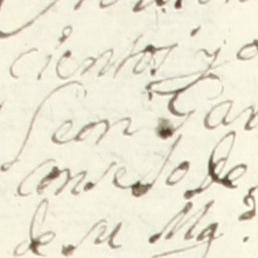 cientos y o
Leon Gar
consejo de
de su Mg.d